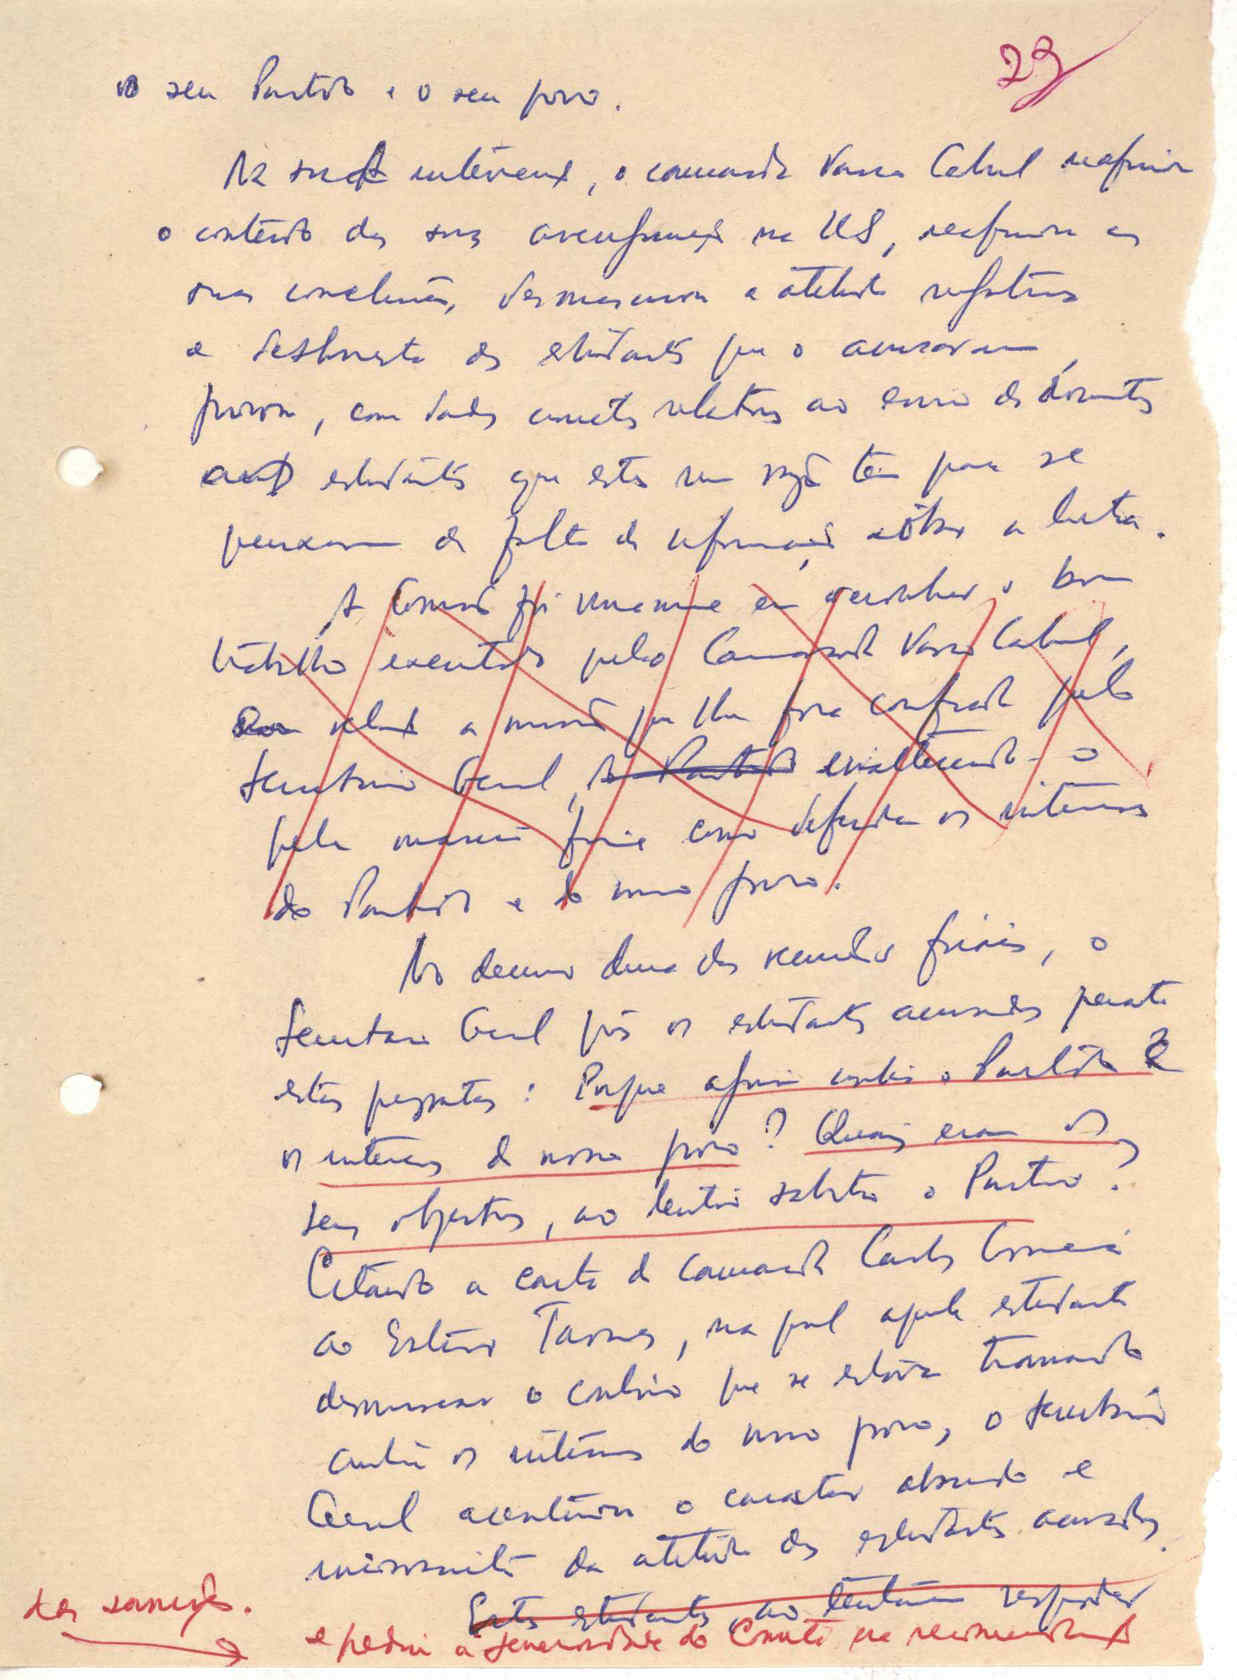 23
o seu Partido e o seu povo.
Na sua intervenção, o camarada Vasco Cabral reafirmou
o conteúdo das suas averiguações na US, reafirmou as
suas conclusões, desmascarou a atitude
e desonesta dos estudantes que o acusaram,
provou, com dados concretos relativos ao envio de documentos
aos estudantes que estes nem razão têm para se
queixarem de falta de informações sôbre a luta.
A Comissão foi unânime em reconhecer o bom
trabalho executado pelo Camarada Vasco Cabral,
a missão que lhe fora confiada pelo
Secretário Geral, do Partido enaltecendo-o
pela maneira firme como defendeu os interesses
do Partido e do nosso povo.
No decurso duma das reuniões finais, o
Secretário Geral pôs os estudantes acusados perante
estas perguntas: Porque agiram contra o Partido e
os interesses do nosso povo? Quais eram os
seus objectivos, ao tentar sabotar o Partido?
Citando a carta do camarada Carlos Correia
ao Estêvão Tavares, na qual aquele estudante
desmascarou o conluio que se estava tramando
contra os interesses do nosso povo, o Secretário
Geral acentuou o carácter absurdo e
da atitude dos estudantes acusados.
Estes estudantes, ao tentarem responder
e pediu a generosidade do Comité na recomendação
das sanções.